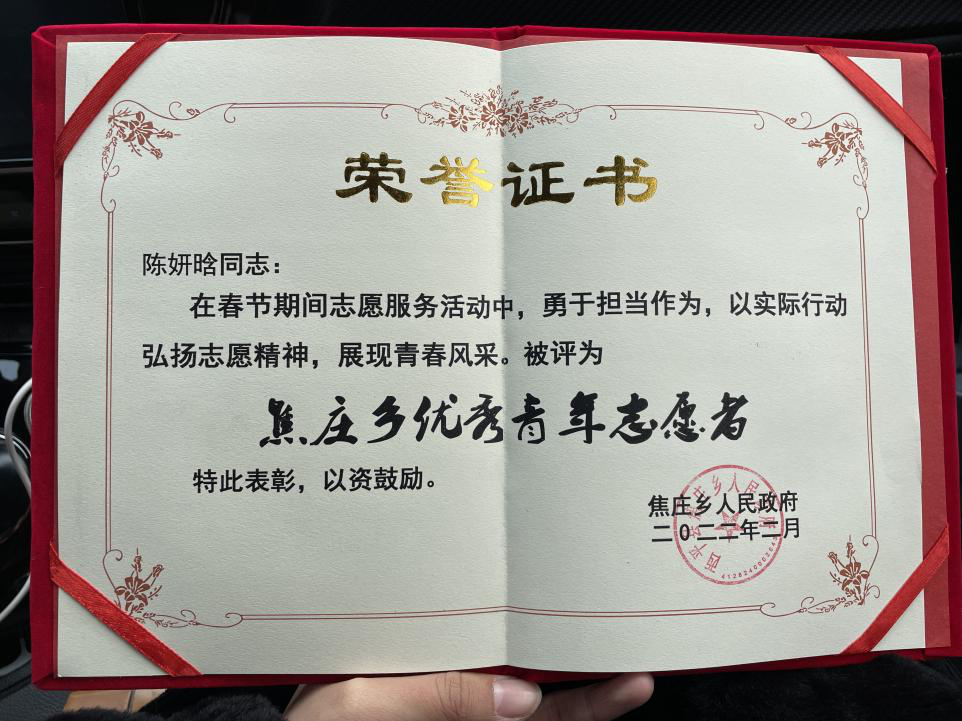 荣誉证书
陈妍晗同志：
在春节期间志愿服务活动中，勇于担当作为，以实际行动
弘扬志愿精神，展现青春风采。被评为
焦庄乡优秀青年志愿者
特此表彰，以资鼓励。
焦庄乡人民政府
二0二二年二月
西平县焦庄乡人民政府